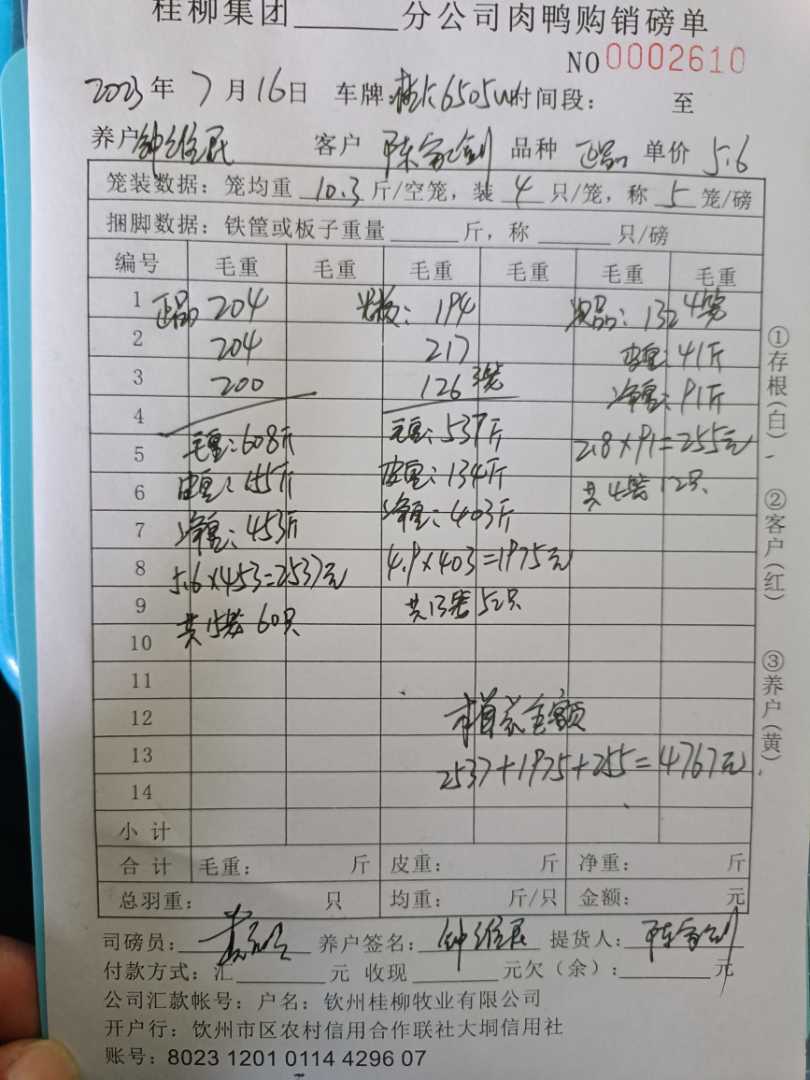 桂柳集团______分公司肉鸭购销磅单
NO 0002610
2023年 7月16日 车牌: 6505 时间段: 至
养户 钟维民 客户 陈家剑 品种 正品 单价 5.6
笼装数据: 笼均重 10.3 斤/空笼, 装 4 只/笼, 称 5 笼/磅
捆脚数据: 铁筐或板子重量______斤, 称______只/磅
编号 毛重 毛重 毛重 毛重 毛重 毛重
1 正品 204 : 194 次品: 132 4笼
2 204 217 皮重: 41斤
3 200 126 3笼 净重: 91斤
4
5 毛重: 608斤 毛重: 537斤 2.8×91=255元
6 皮重: 155斤 皮重: 134斤 共4笼 12只
7 净重: 453斤 净重: 403斤
8 5.6×453=2537元 4.9×403=1975元
9 共15笼 60只 共13笼 52只
10
11
12 总金额
13 2537+1975+255=4767元
14
小计
合计 毛重: 斤 皮重: 斤 净重: 斤
总羽重: 只 均重: 斤/只 金额: 元
司磅员: 养户签名: 钟维民 提货人: 陈家剑
付款方式: 汇______元 收现______元欠(余):______元
公司汇款帐号: 户名: 钦州桂柳牧业有限公司
开户行: 钦州市区农村信用合作联社大垌信用社
账号: 8023 1201 0114 4296 07
①存根(白)
②客户(红)
③养户(黄)